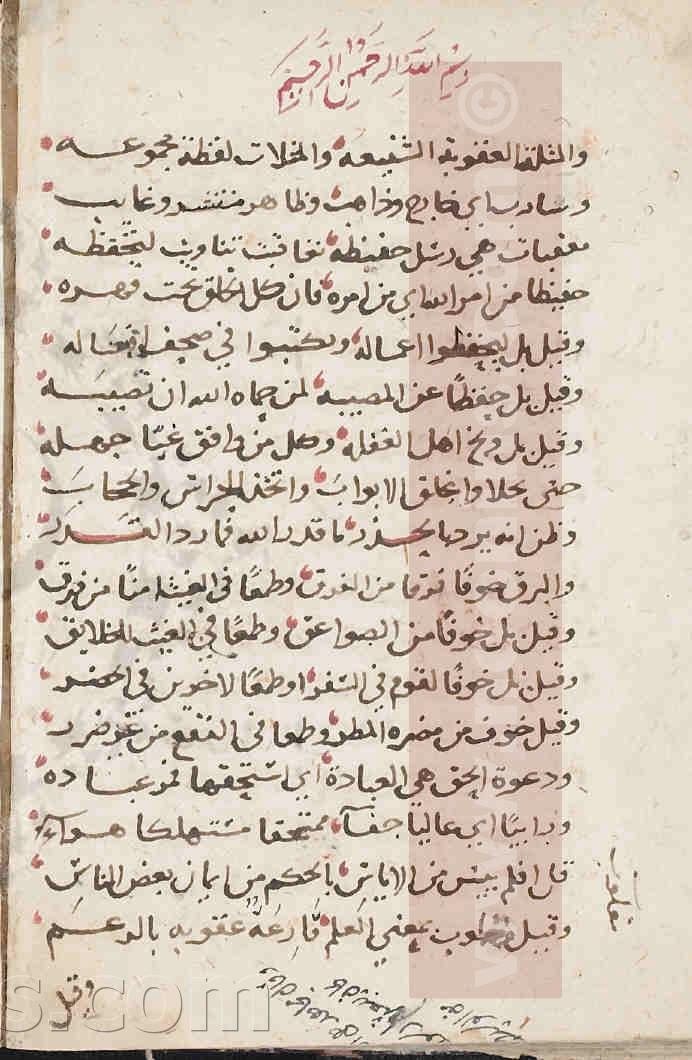 بسم الله الرحمن الرحيم
والمثلة العقوبة الشنيعه والمثلات لفظة مجموعه
وسارب اي خارج وذاهب وظاهر منتشر وغايب
معقبات هي رسل حفيظه تعاقبت تناوبت لتحفظه
حفيظا من امر الله اي من امره فان كل الخلق تحت قهره
وقيل بل ليحفظوا اعماله ويكتبوا في صحف افعاله
وقيل بل حفظا عن المصيبه لمن حماه الله ان تصيبه
وقيل بل وبخ اهل الغفله وكل من وافق غيا جهله
حتى علا واغلق الابواب واتخذ الحراس والحجاب
وظن انه يرد بالحذر ما قدر الله فما رد القدر
والبرق خوفا فرقا من الغرق وطمعا في الغيث امنا من فرق
وقيل بل خوفا من الصواعق وطمعا في الغيث للخلايق
وقيل بل خوفا لقوم في السفر اوطمعا لاخرين في الحضر
وقيل خوف من مضره المطر وطمعا في النفع من غير ضرر
ودعوة الحق هي العبادة اي استحقها فمر عباده
ورابيا اي عاليا جفآء ممتحقا مستهلكا هوآء
قل افلم ييئس من الاياس بالحكم من ايمان بعض الناس
وقيل بمعني العلم قارعة عقوبه بالرغم
وقيل